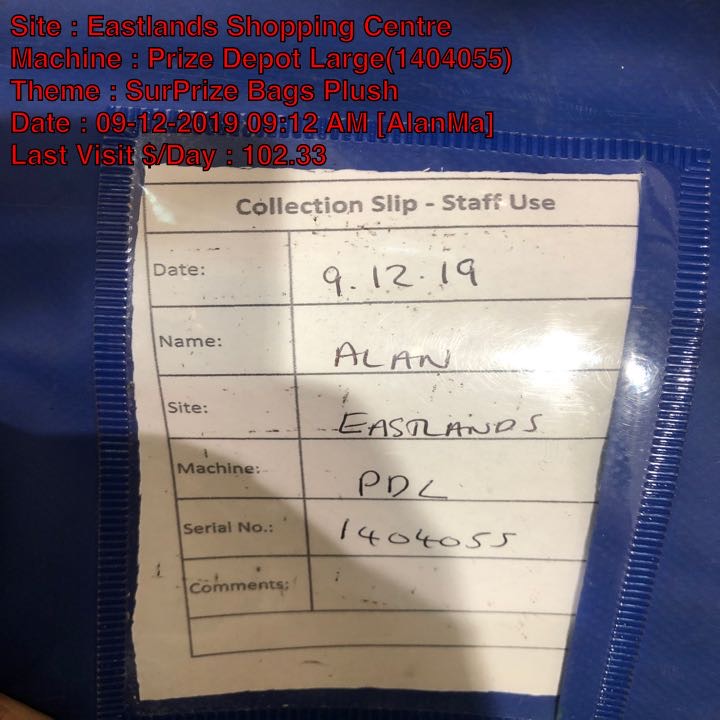 Site : Eastlands Shopping Centre
Machine : Prize Depot Large(1404055)
Theme : SurPrize Bags Plush
Date : 09-12-2019 09:12 AM [AlanMa]
Last Visit $/Day : 102.33
Collection Slip - Staff Use
Date: 9.12.19
Name: ALAN
Site: EASTLANDS
Machine: PDL
Serial No.: 1404055
Comments: